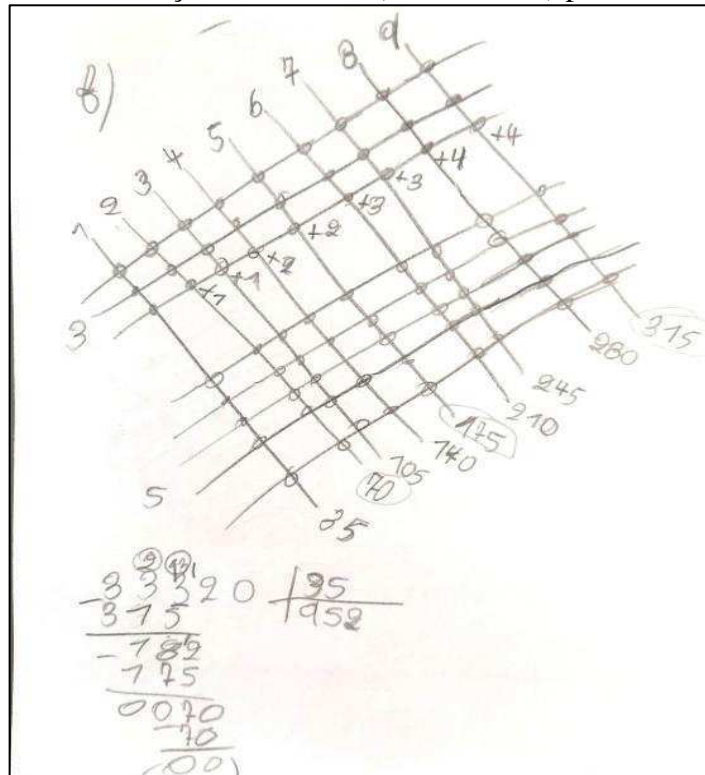 в)
1 2 3 4 5 6 7 8 9
3
+1 +1 +2 +2 +3 +3 +4 +4
5
35 70 105 140 175 210 245 280 315
33320 35
315 952
- 182
175
0070
70
(00)